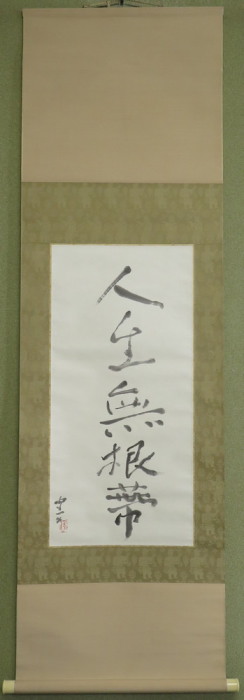 人生無根蔕